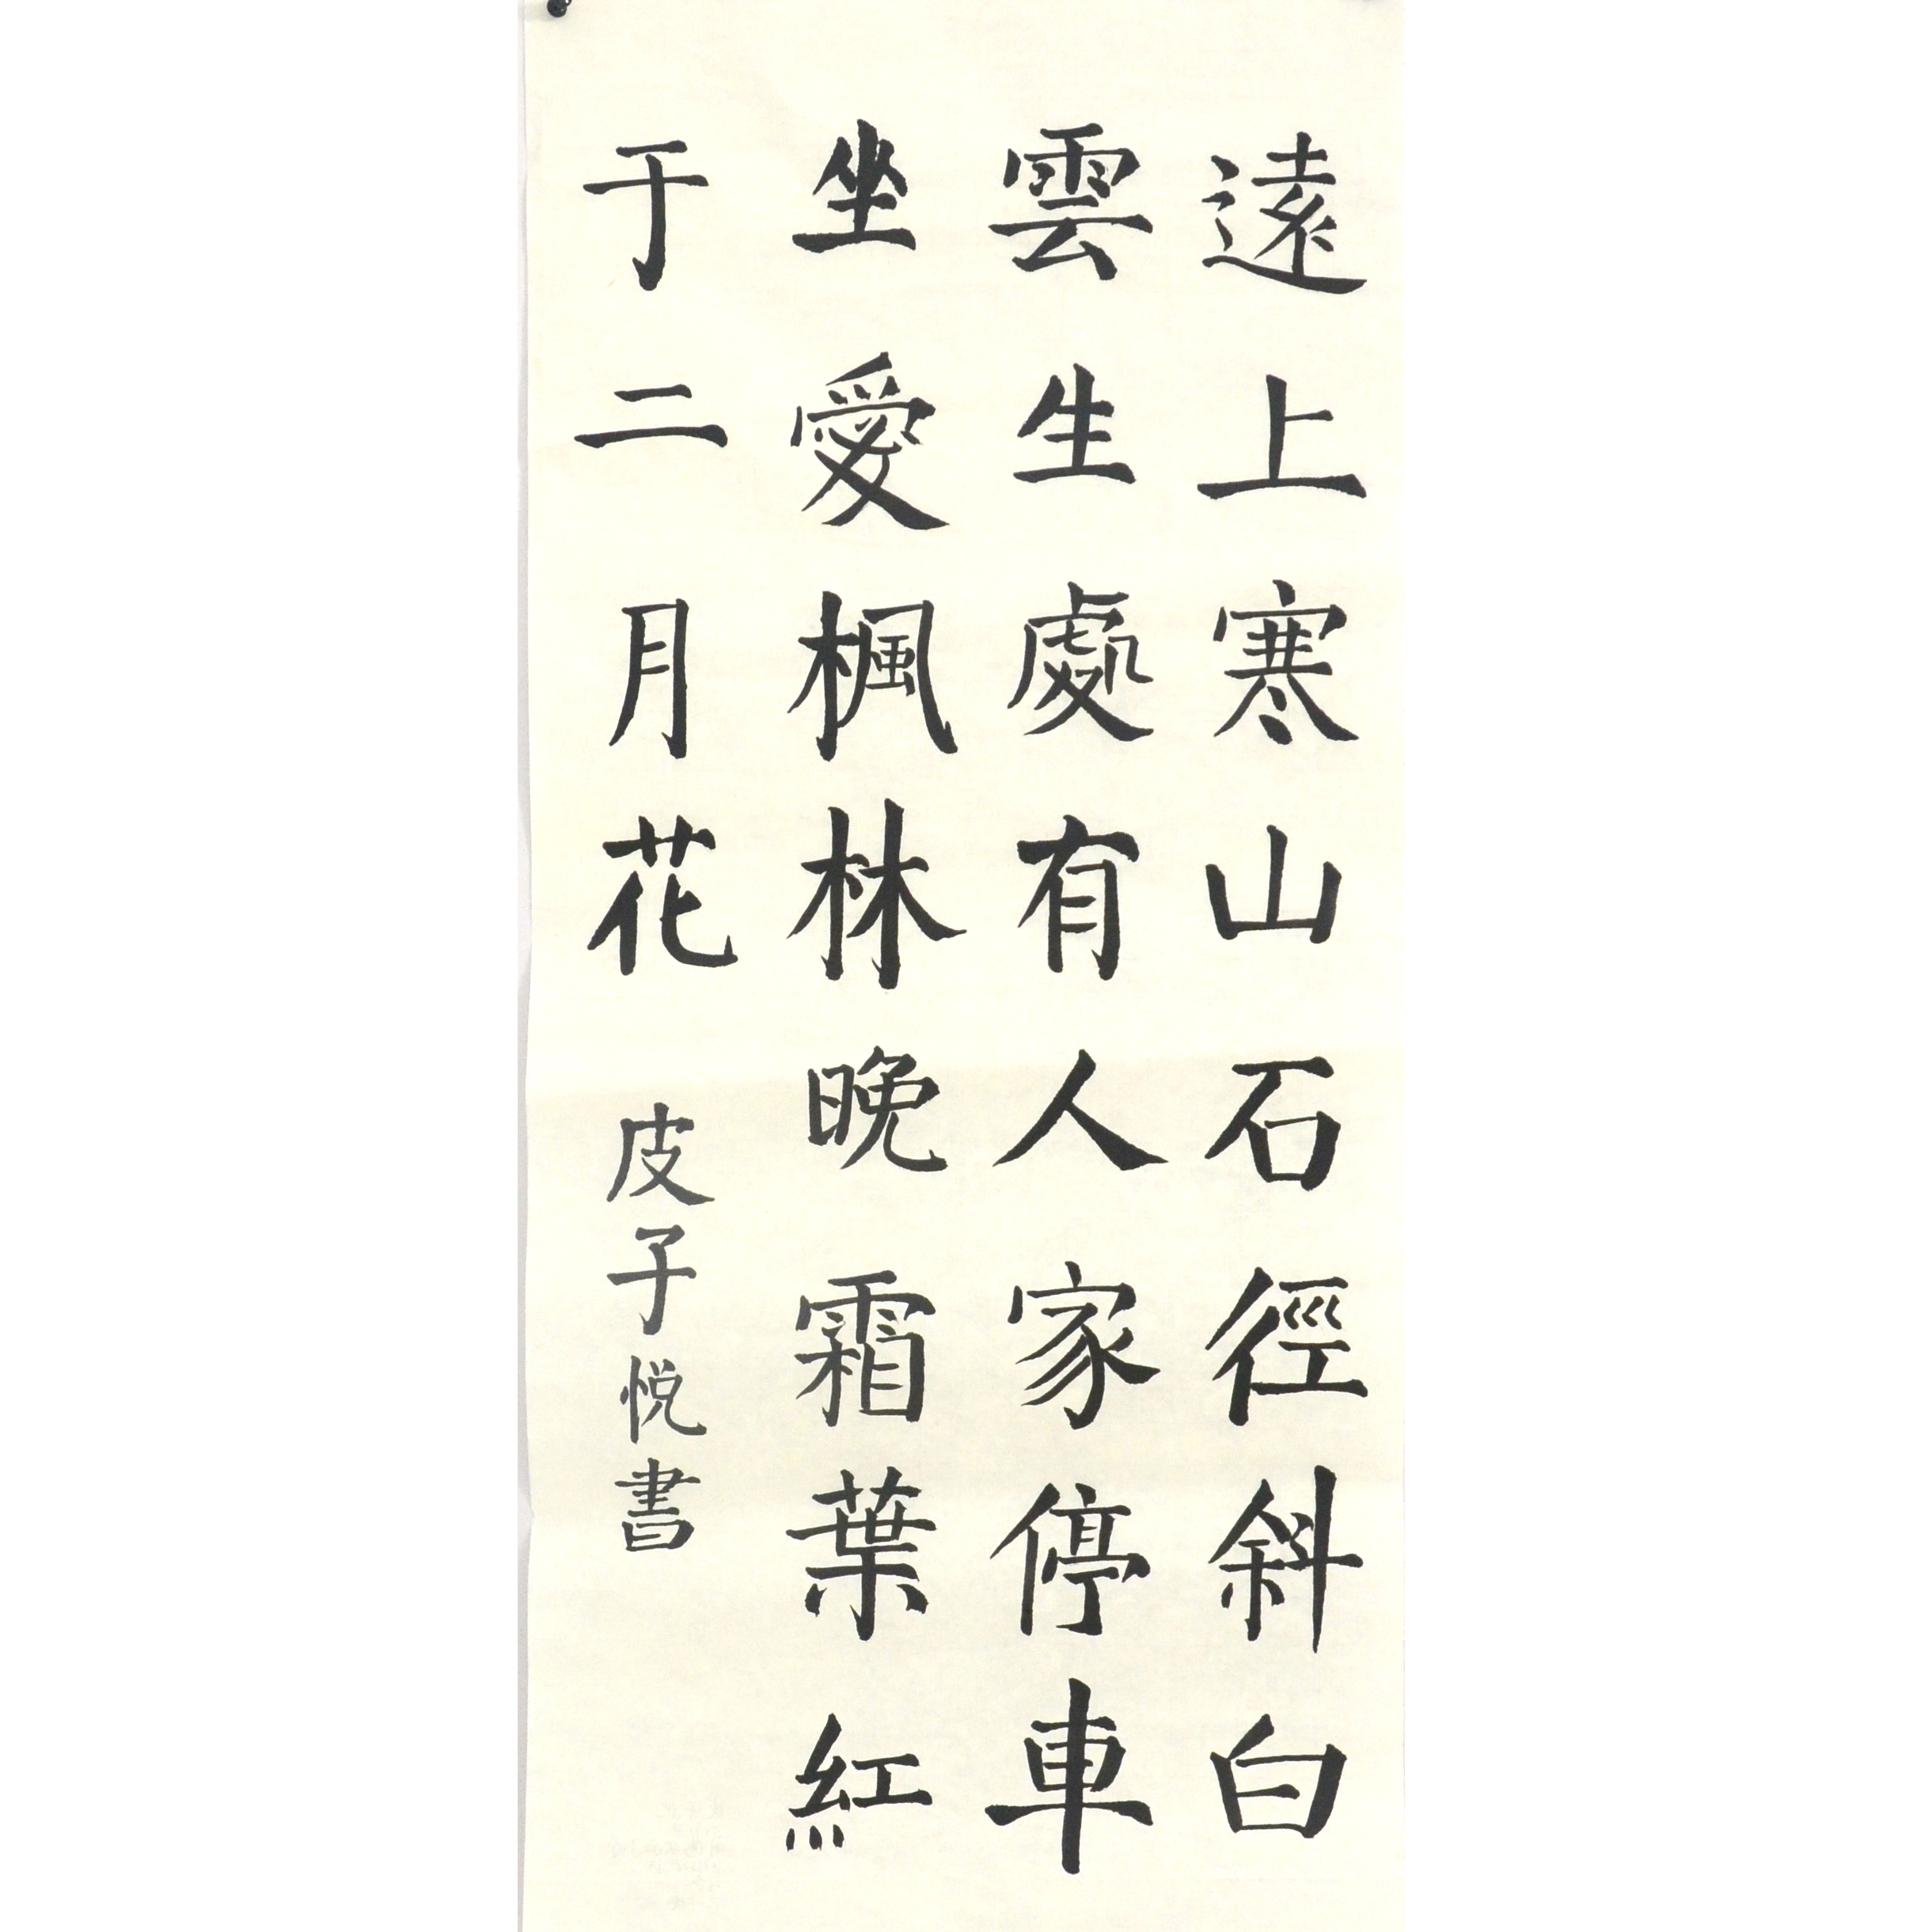 遠上寒山石徑斜白
雲生處有人家停車
坐愛楓林晚霜葉紅
于二月花 皮子悦書